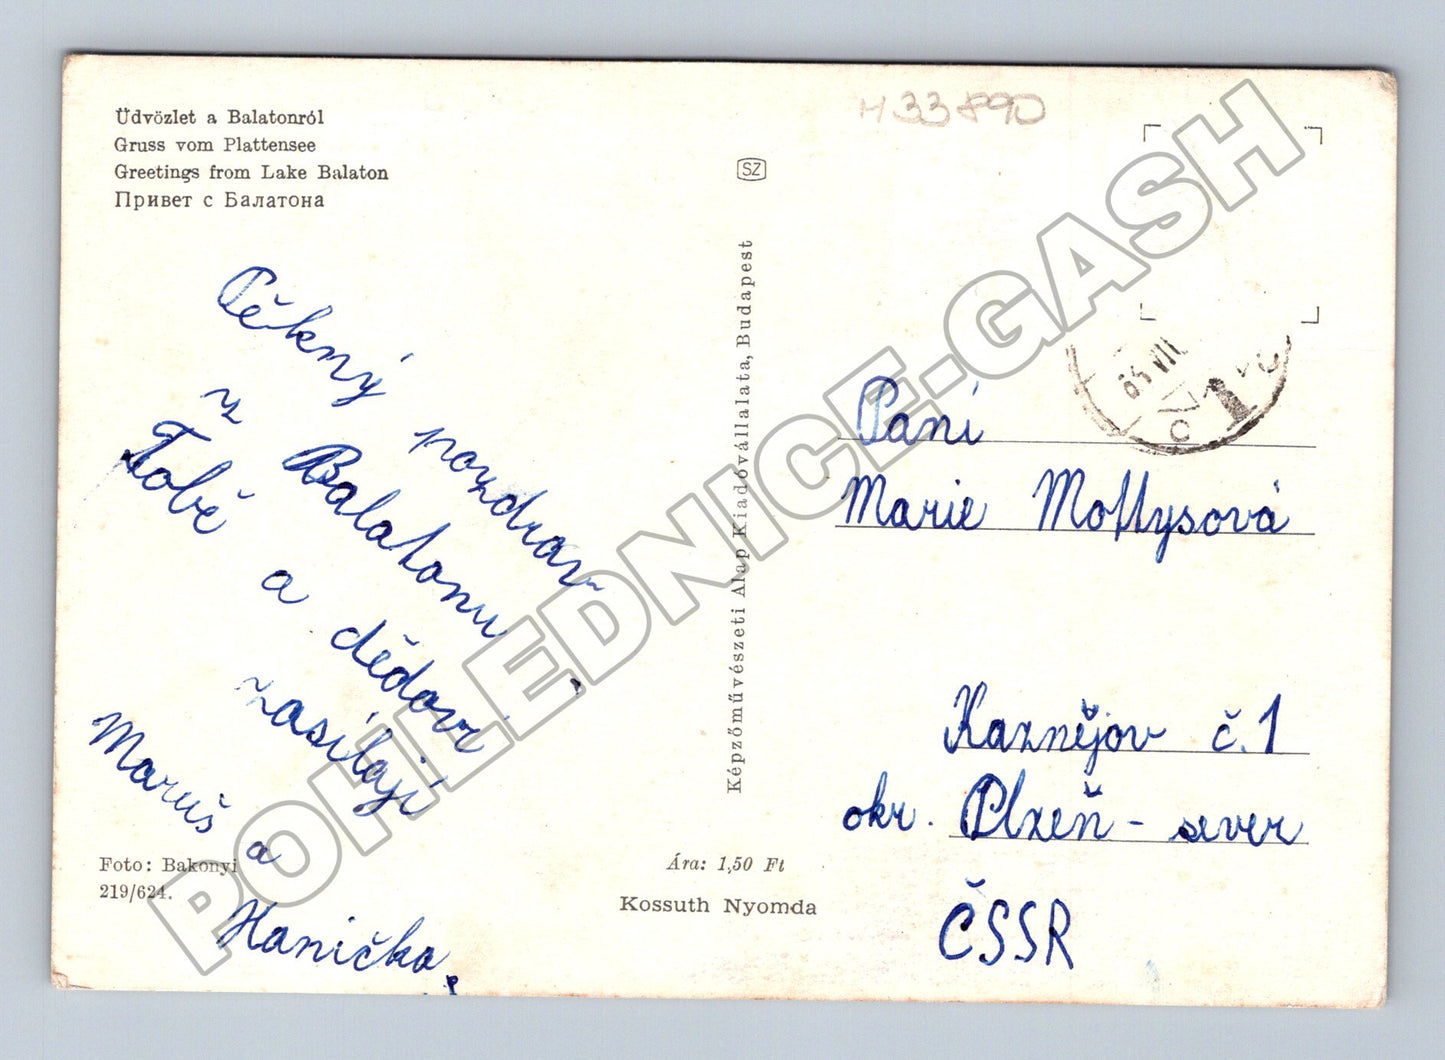 Üdvözlet a Balatonról
Gruss vom Plattensee
Greetings from Lake Balaton
Привет с Балатона
Pěkný pozdrav
z Balatonu
Tobě a dědovi
zasílají
Maruš a
Hanička.
Foto: Bakonyi
219/624.
Ára: 1,50 Ft
Kossuth Nyomda
SZ
Képzőművészeti Alap Kiadóvállalata, Budapest
H33890
65 VII
1
Paní
Marie Mottysová
Kaznějov č.1
okr. Plzeň - sever
ČSSR
POHLEDNICE-GASH